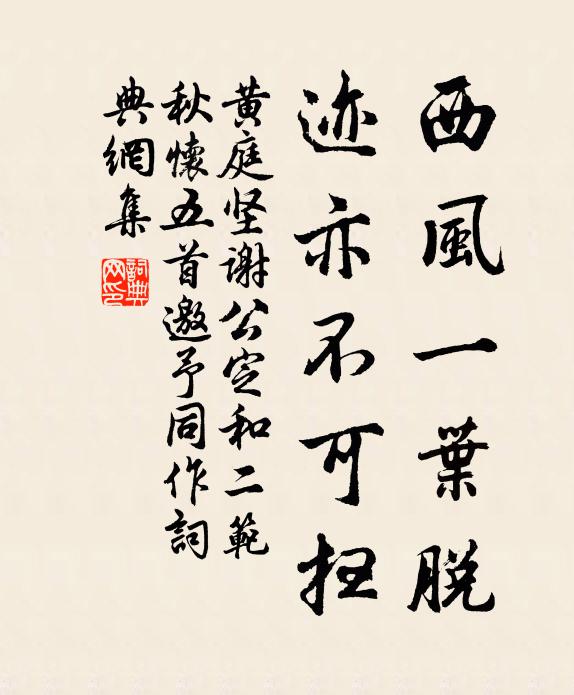 西風一葉脫
迹亦不可扫
黄庭坚謝公定和二範
秋懷五首邀予同作詞
典網集
詞典網印